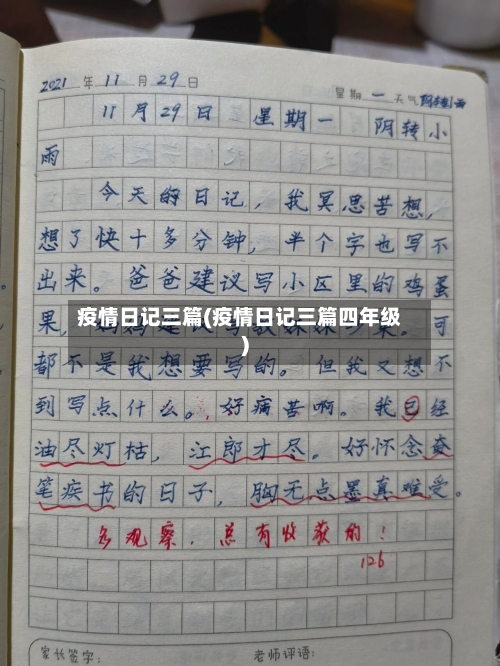 2021年11月29日 星期一 天气阴转小雨
11月29日 星期一 阴转小
雨
今天的日记，我冥思苦想，
想了快十多分钟，半个字也写不
出来。爸爸建议写小区里的鸡蛋
果，
疫情日记三篇(疫情日记三篇四年级
)
可
都不是我想要写的。但我又想不
到写点什么。好痛苦啊。我已经
油尽灯枯，江郎才尽。好怀念奋
笔疾书的日子，胸无点墨真难受。
多观察，总有收获的！
126
家长签字： 老师评语：